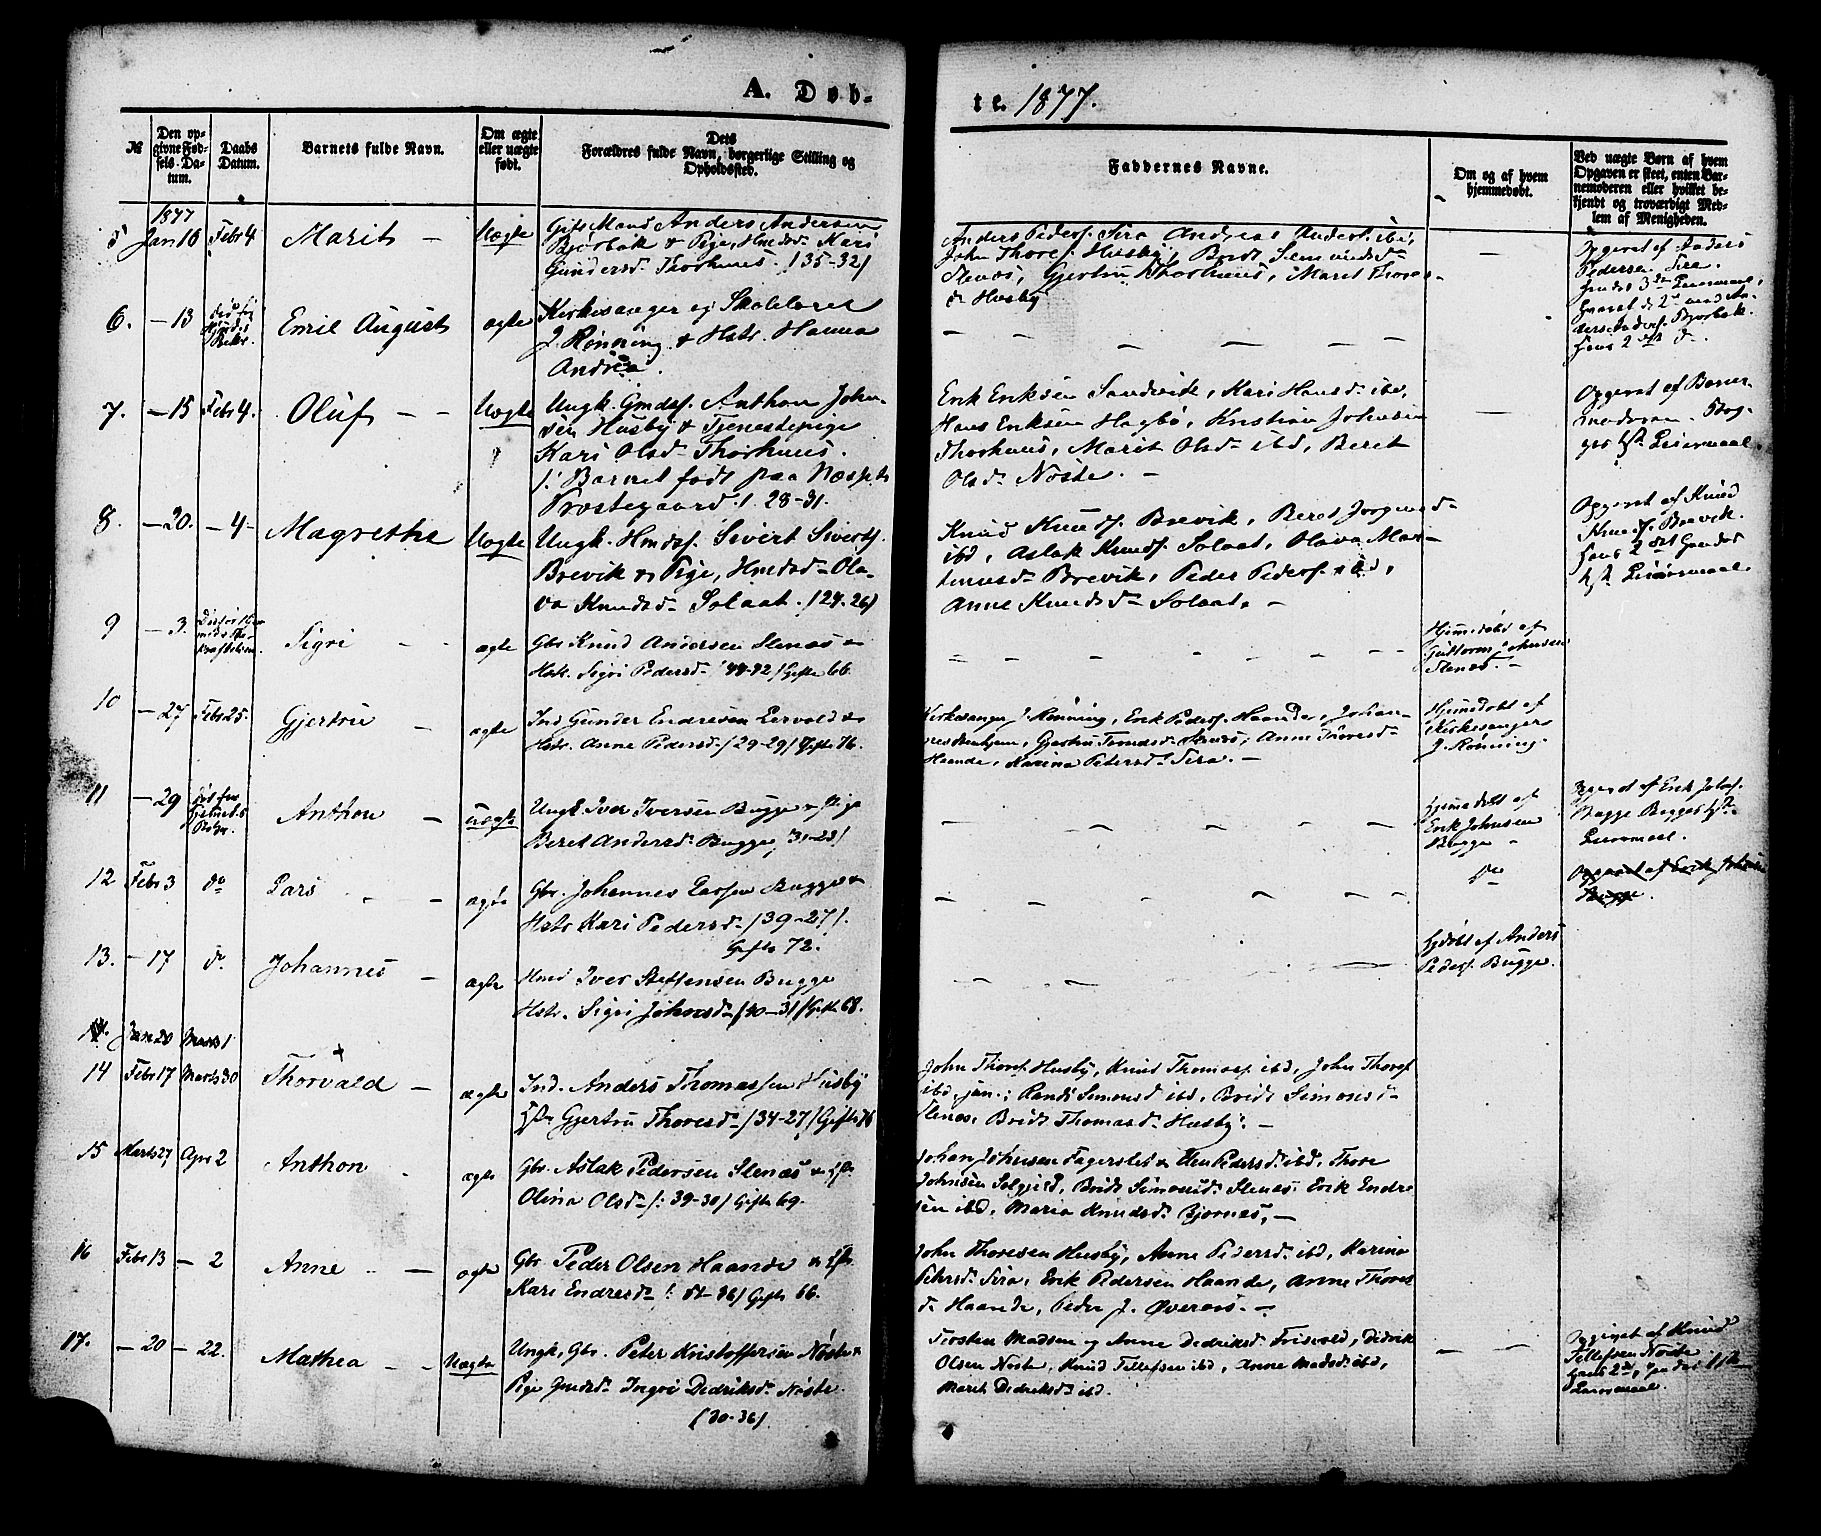 A. Døb-
te. 1877.
№
Den opgivne Fødsels-Datum.
Daabs Datum.
Barnets fulde Navn.
Om ægte eller uægte født.
Dets Forældres fulde Navn, borgerlige Stilling og Opholdssted.
Faddernes Navne.
Om og af hvem hjemmedøbt.
Ved uægte Børn af hvem Opgaven er skeet, enten Barnemoderen eller hvilket bekjendt og troværdigt Medlem af Menigheden.
1877
5 Jan 16 Febr 4 Marit - Uægte
Gift Mand Anders Andersen
Bjørbak & Pige, Hmdsd. Kari
Gundersd. Thorhuus. /35-32/
Anders Peders. Sira Andreas Anders. ibd,
John Thores. Husby, Brit Simonsd.
Stenæs, Gjertru Thorhuus, Marit Thores-
d. Husby
Opgivet af Anders
Pedersen Sira.
6. - 13 Emil August ægte
Kirkesanger og Skolelærer
J. Rønning & Hstr. Hanna
Andrea.
7. - 15 Febr 4. Oluf - - Uægte
Ungk. Gmds. Anthon John-
sen Husby & Tjenestepige
Kari Olsd. Thorhuus.
/: Barnet født paa Næssets
Prostegaard. /. 28-31.
Erik Eriksen Sandvik, Kari Hansd. ibd,
Hans Eriksen Hagbø, Kristian Johnsen
Thorhuus, Marit Olsd. ibd, Beret
Olsd. Nøste. -
Opgivet af Barne-
moderen. Beg-
ges 1ste Leiermaal.
8. - 20. - 4 - Magrethe Uægte
Ungk. Hmds. Sivert Siverts.
Brevik & Pige, Hmdsd. Ola-
va Knudsd. Solaat. /24-26/
Knud Knuds. Brevik, Beret Jørgensd.
ibd, Aslak Knuds. Solaat, Olava Mor-
tensd. Brevik, Peder Peders. ibd,
Anne Knudsd. Solaat. -
Opgivet af Knud
Knuds. Brevik.
Hans 2det Hendes
1ste Leiermaal
9 - 3. Sigri - - ægte
Gbr Knud Andersen Stenæs &
Hstr. Sigri Pedersd. /44-42/ Gifte 66.
Hjemdøbt af
Guttorm Johnsen
Stenæs -
10 - 27 Febr 25. Gjertru - ægte
Ind. Gunder Endresen Lervold &
Hstr. Anne Pedersd. /29-29/ Gifte 76.
Kirkesanger J. Rønning, Erik Peders. Haande, Johan-
Haande, Karina Petersd. Sira. -
Hjemdøbt af
Kirkesanger
J. Rønning.
11 - 29 Anthon - uægte
Ungk. Iver Iversen Bugge & Pige
Beret Andersd. Bugge,
Hjemdøbt af
Erik Johnsen
Bugge
Leiermaal.
12 Febr 3 do Lars - - ægte
Gbr. Johannes Larsen Bugge &
Hstr Kari Pedersd. /39-27/.
Gifte 72.
do
13. - 17 do. Johannes - ægte
Hmd Iver Steffensen Bugge
Hstr. Sigri Johnsd. /40-31/ Gifte 68.
Hjdøbt af Anders
Peders. Bugge.
14. Jan 20 Marts 1
14 Febr 17 Marts 30 Thorvald - ægte
Ind. Anders Thomassen Husby
Hstr Gjertru Thoresd. /34-27/ Gifte 76
John Thores. Husby, Knud Thomass. ibd, John Thores.
ibd, jun.; Randi Simonsd. ibd, Brit Simonsd.
Stenæs, Brit Thomasd. Husby. -
15 Marts 27 Apr 2 Anthon - ægte
Gbr. Aslak Pedersen Stenæs & Hstr.
Olina Olsd. /: 39-30/ Gifte 69.
Johan Johnsen Fagerslet & Elen Pedersd. ibd, Thore
Johnsen Solgjerd, Brit Simonsd. Stenæs, Erik Endre-
sen ibd, Maria Knudsd. Bjørnæs, -
16 Febr 13 - 2 Anne - - ægte
Gbr. Peder Olsen Haande & Hstr.
Kari Endresd. Gifte 66.
John Thoresen Husby, Anne Pedersd. ibd, Karina
Petersd. Sira, Erik Pedersen Haande, Anne Thores-
d. Haande, Peder J. Øveraas. -
17. - 20 - 22. Mathea - - Uægte
Ungk. Gbr. Peter Kristoffersen Nøste &
Pige Gmdsd. Ingri Didriksd. Nøste
/30-36/
Torsten Madsen og Anne Didriksd. Frisvold, Didrik
Olsen Nøste, Knud Tellefsen ibd, Anne Madsd. ibd,
Marit Didriksd. ibd.
Opgivet af Knud
Tellefsen Nøste
Leiermaal.